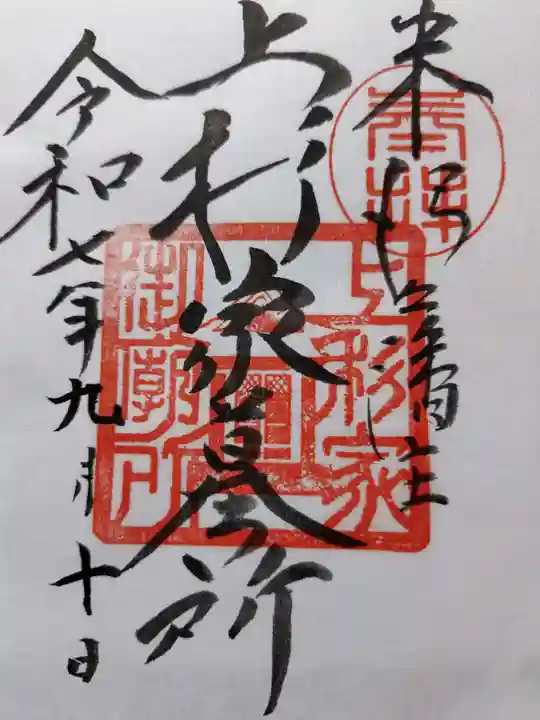 米沢藩主
上杉家墓所
令和七年九月十日
奉拝
上杉家
御廟所